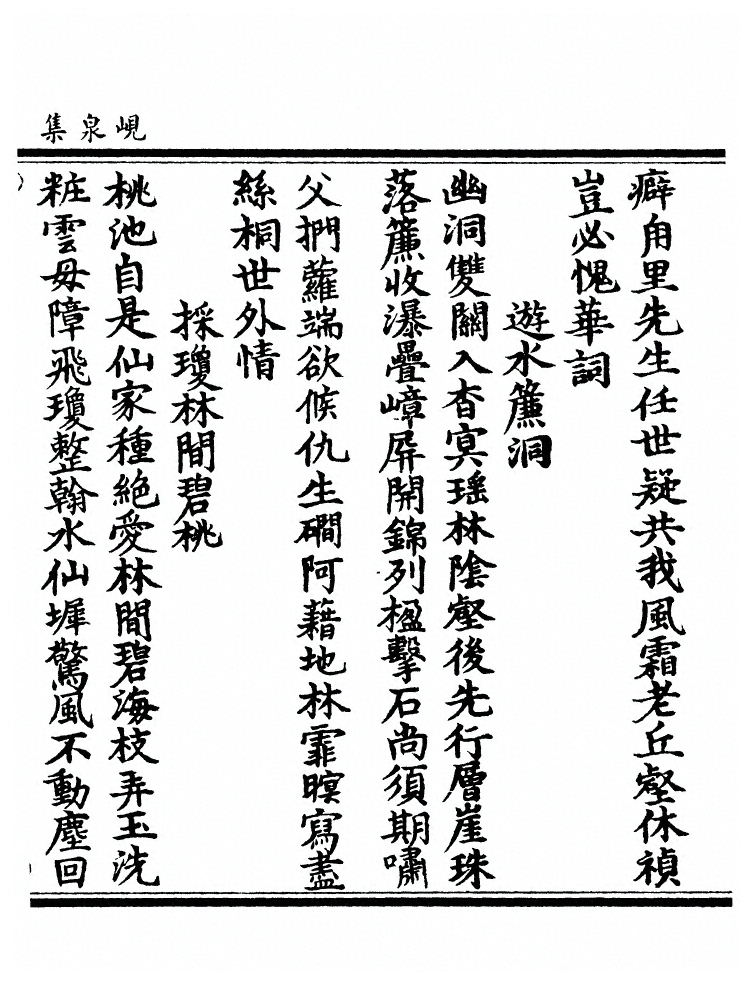 峴泉集
癖甪里先生任世疑共我風霜老丘壑休禎
豈必愧華詞
遊水簾洞
幽洞雙關入杳冥瑶林陰壑後先行層崖珠
落簾收瀑疊嶂屏開錦列楹擊石尚須期嘯
父捫蘿端欲候仇生磵阿藉地林霏暝寫盡
絲桐世外情
採瓊林間碧桃
桃池自是仙家種絶愛林間碧海枝弄玉洗
粧雲母障飛瓊整翰水仙墀驚風不動塵回